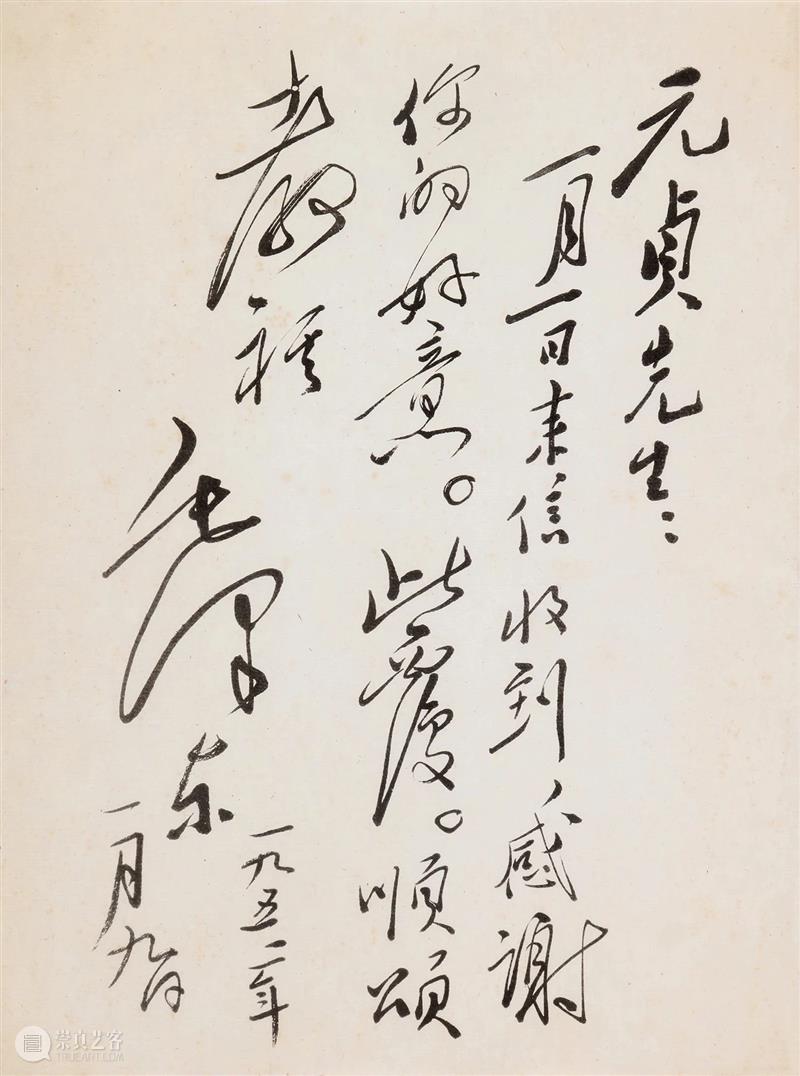 元貞先生：
一月一日来信收到、感謝
你的好意。此覆。順頌
教祺
毛泽东
一九五二年
一月九日
崇真艺客
TRUEART.COM